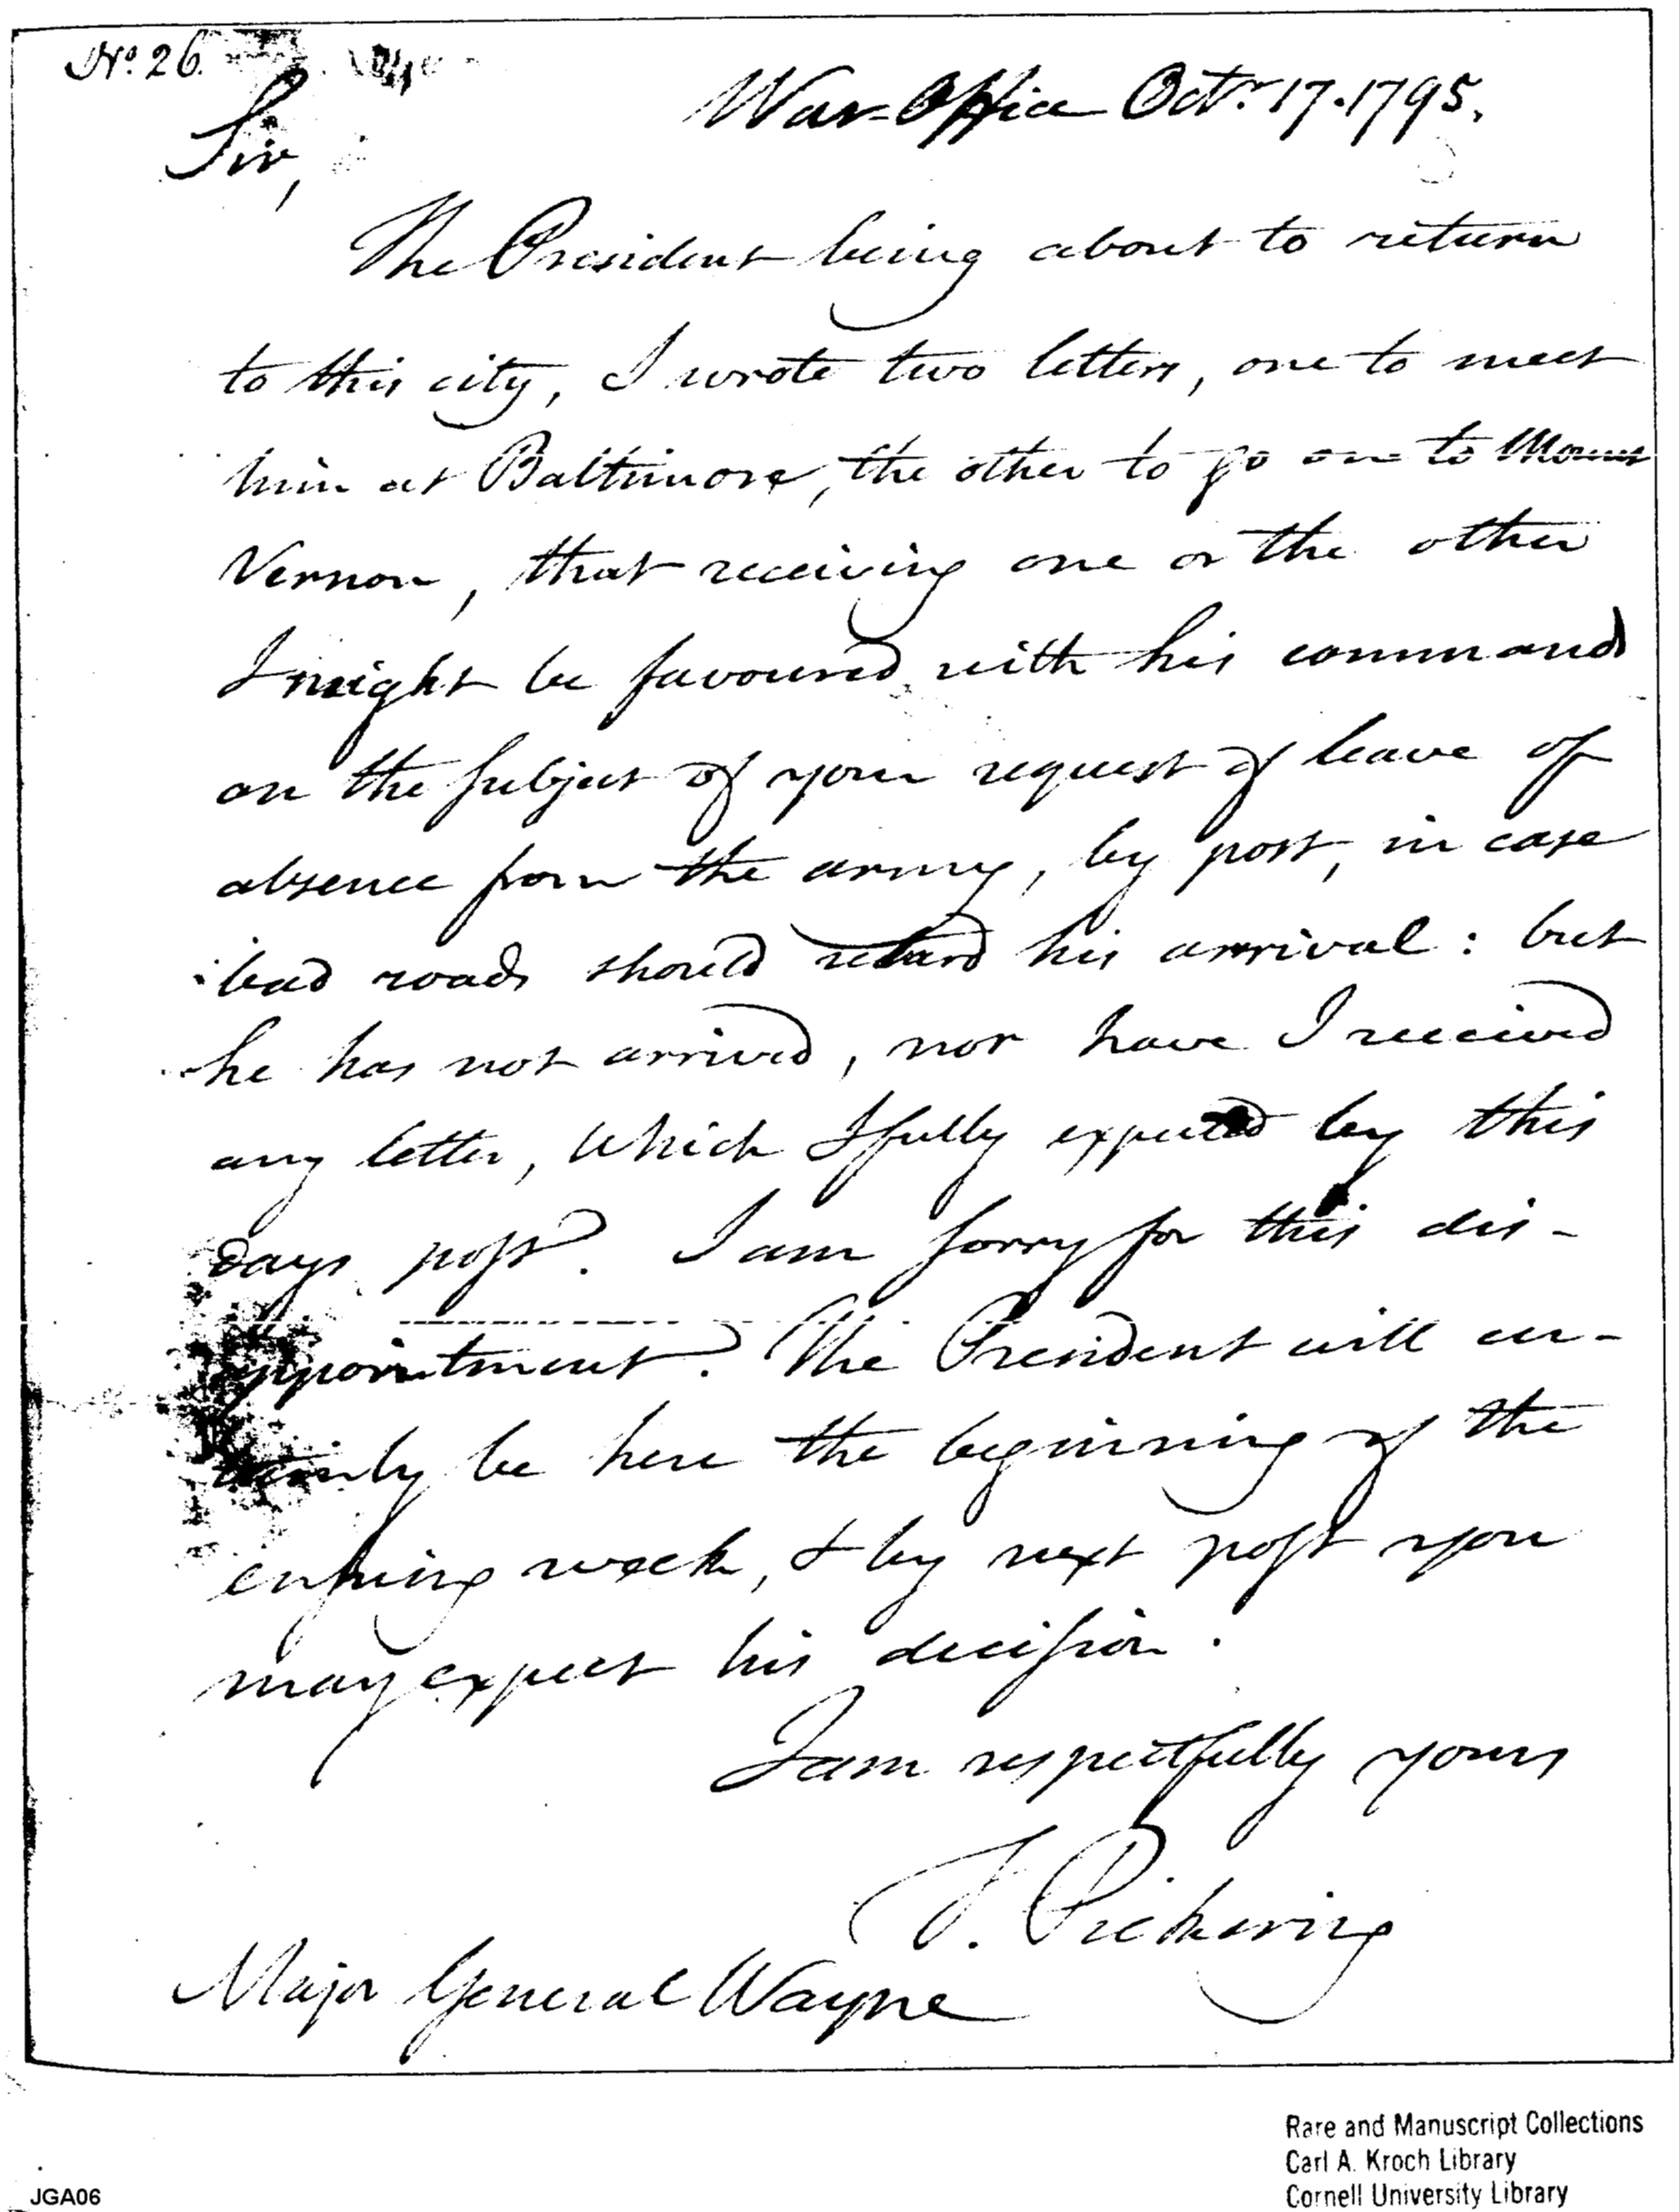 No. 26.
War-Office Octr. 17. 1795.
Sir,
The President being about to return
to this city, I wrote two letters, one to meet
him at Baltimore, the other to go on to Mount
Vernon, that receiving one or the other
I might be favoured with his commands
on the subject of your request of leave of
absence from the army, by post, in case
bad roads should retard his arrival: but
he has not arrived, nor have I received
any letter, which I fully expected by this
days post. I am sorry for this dis-
appointment. The President will cer-
tainly be here the beginning of the
ensuing week, & by next post you
may expect his decision.
I am respectfully yours
T. Pickering
Major General Wayne
Rare and Manuscript Collections
Carl A. Kroch Library
Cornell University Library
JGA06